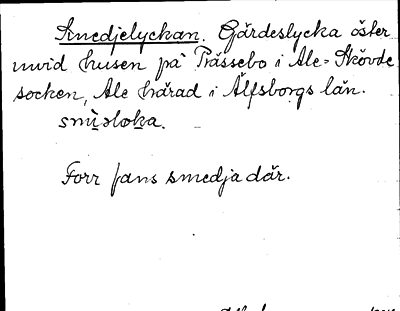 Smedjelyckan. Gärdeslycka öster
invid husen på Prässebo i Ale-Skövde
socken, Ale härad i Älfsborgs län.
smìǝloka.
Forr fans smedja där.